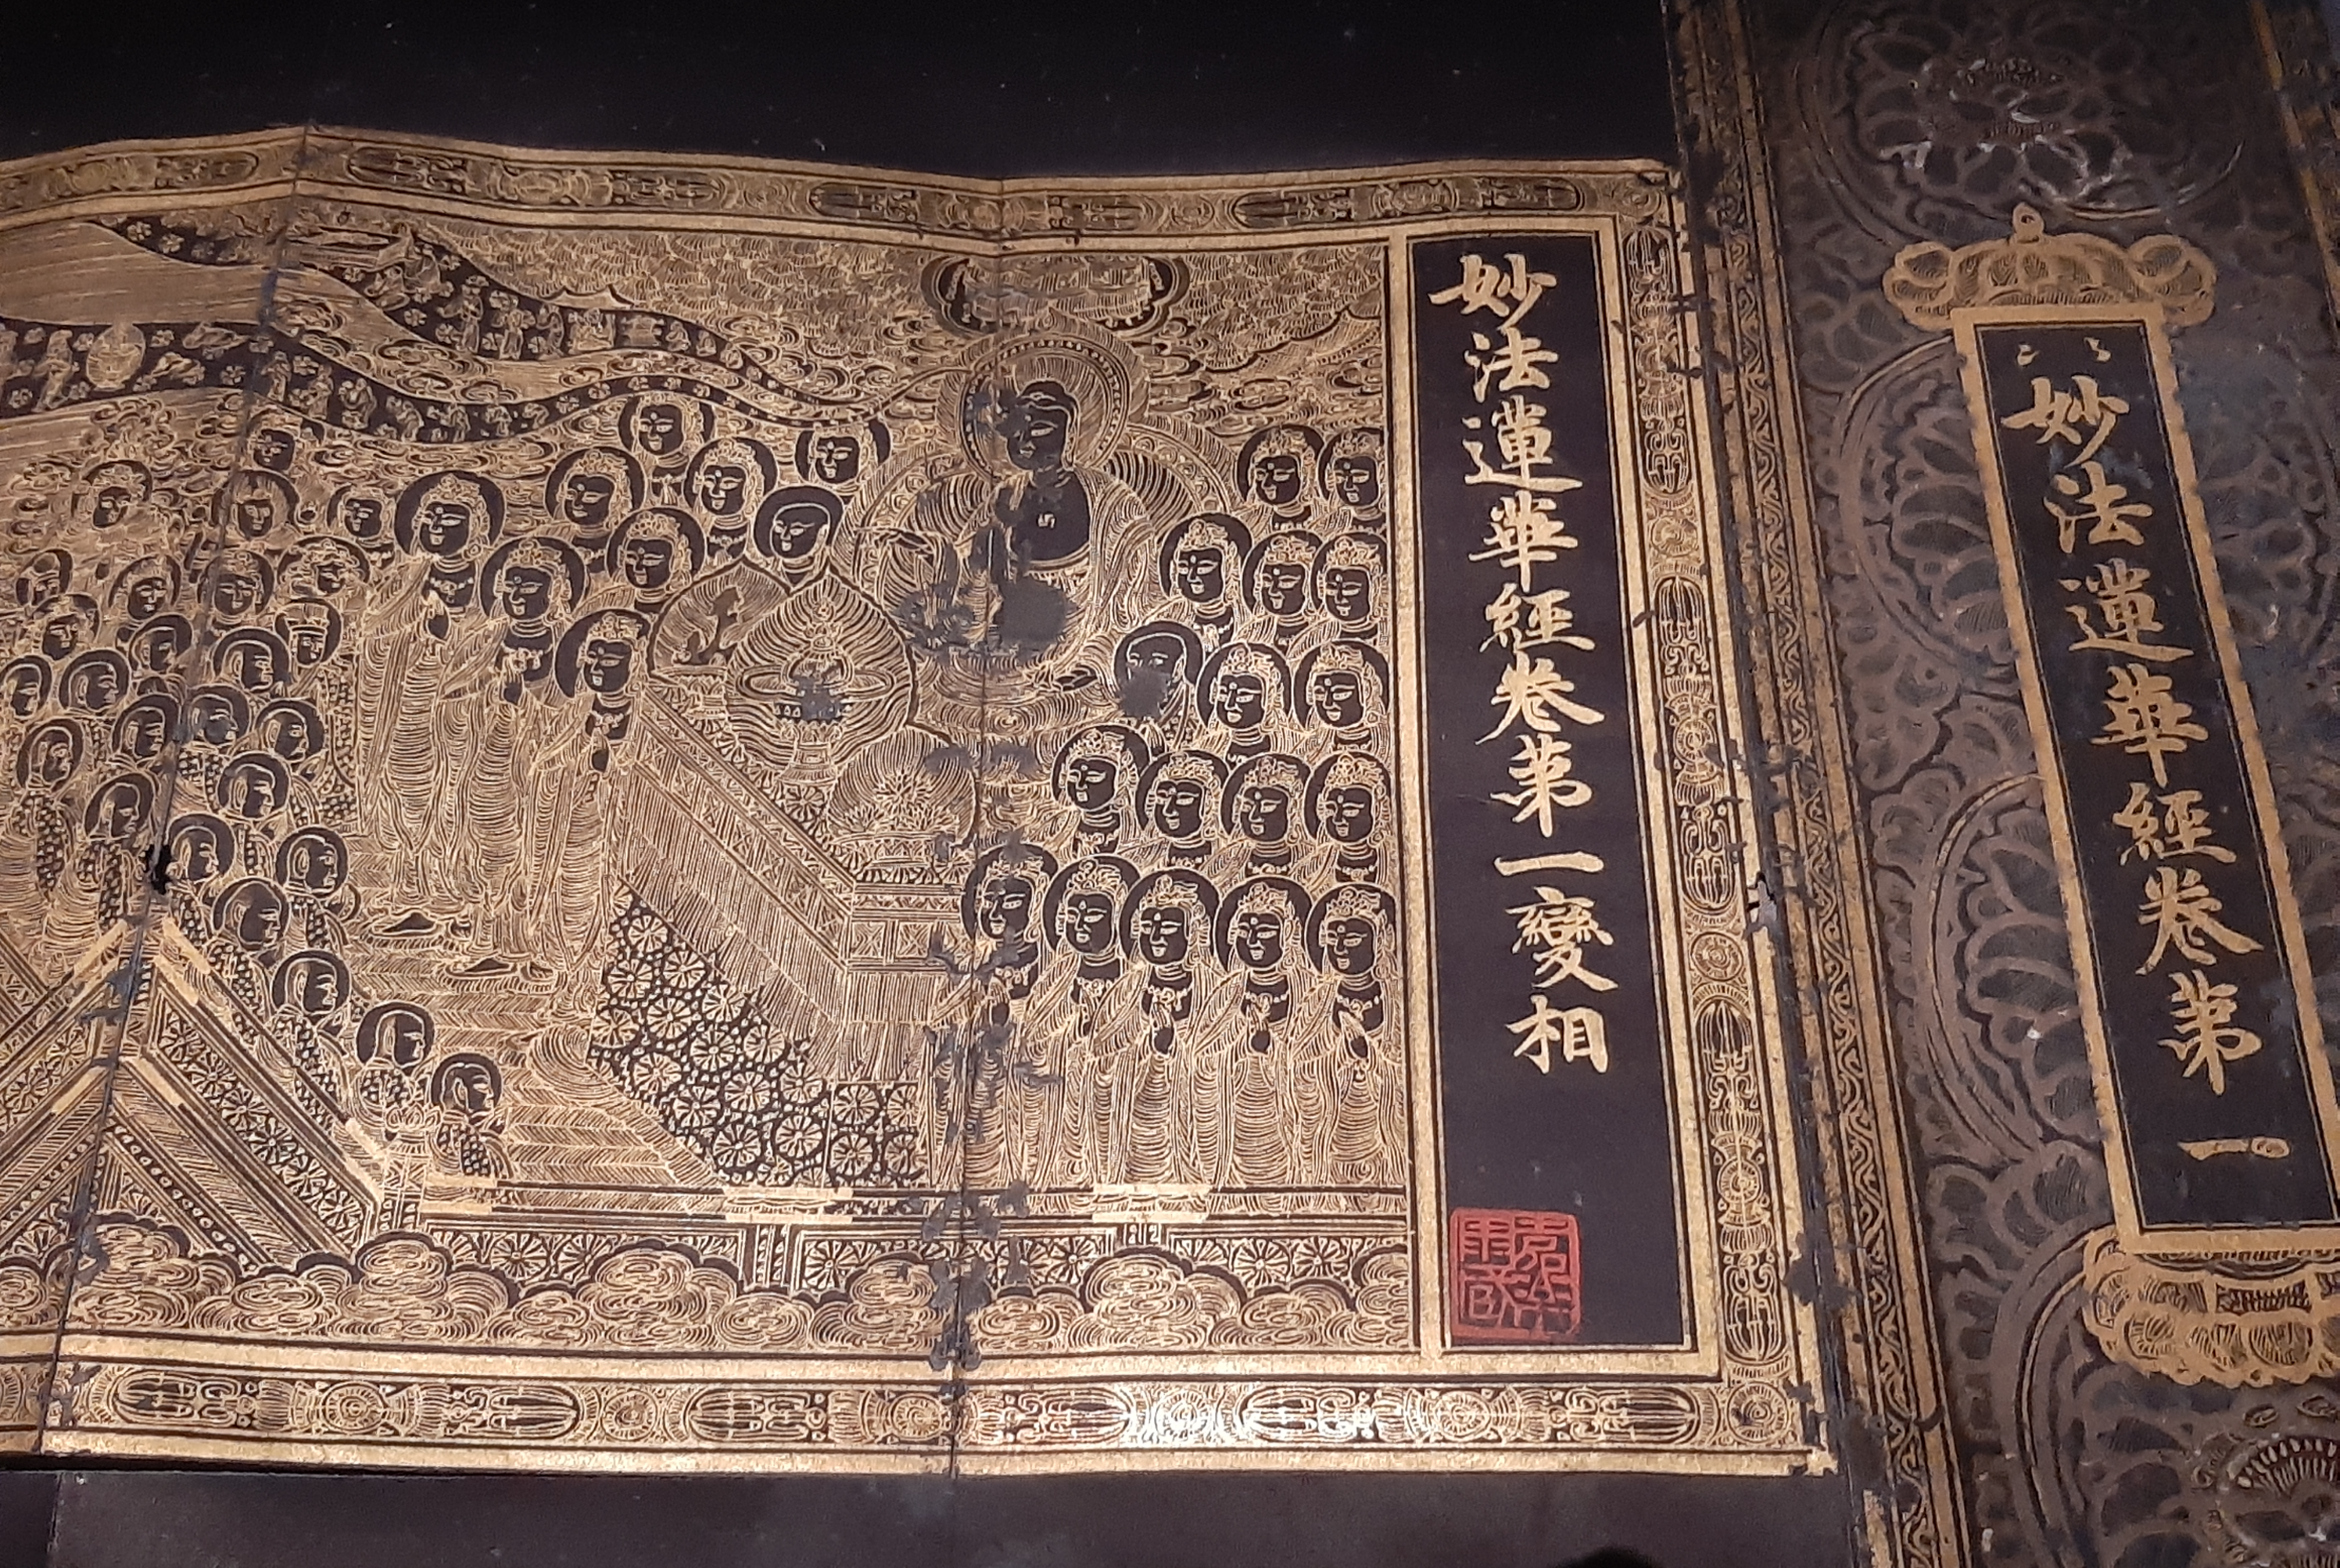 妙法蓮華經卷第一
妙法蓮華經卷第一變相